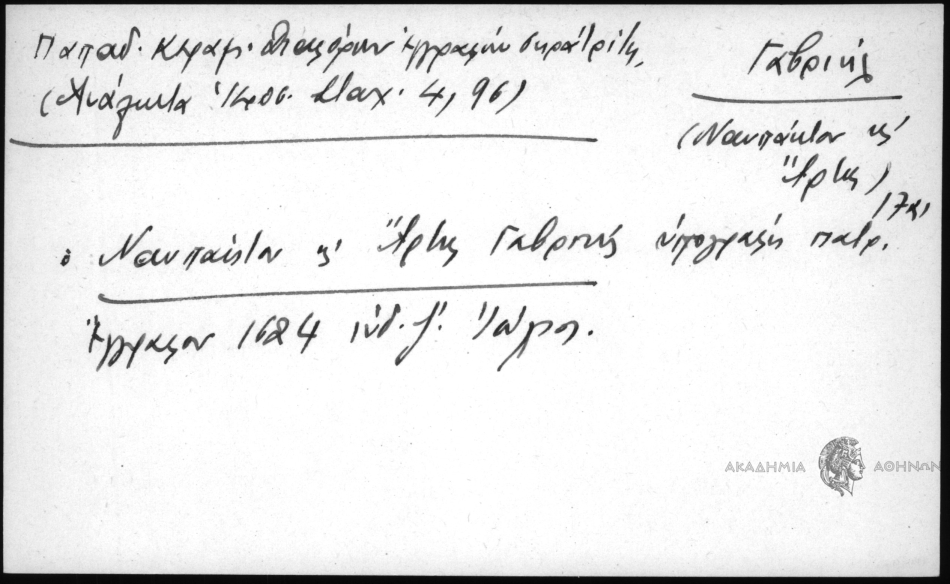 Παπαδ. Κεραμ. Διαφόρων ἐγγράφων
(Ἀνάλεκτα Ἱεροσ. Σταχ. 4, 96)
Γαβριήλ
(Ναυπάκτου κ'
Ἄρτης)
17 αι
ὁ Ναυπάκτου κ' Ἄρτης Γαβριήλ ὑπογραφὴ πατρ.
ἔγγραφον 1684 ἰνδ. ζ'. Ἰούλιος.
ΑΚΑΔΗΜΙΑ ΑΘΗΝΩΝ